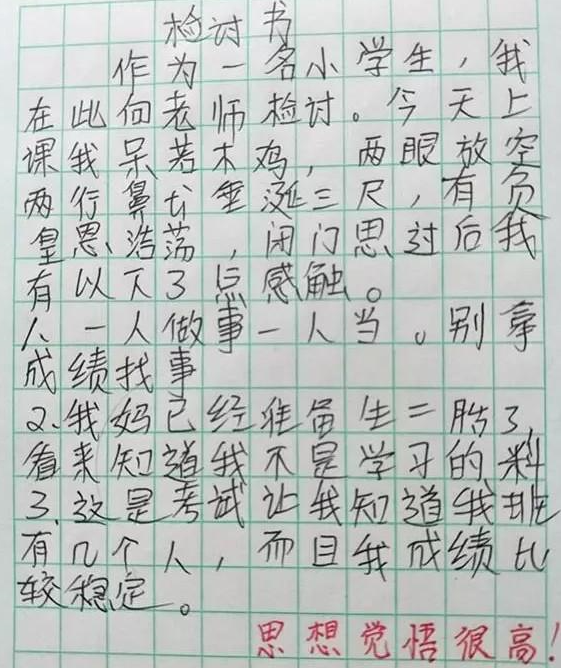 检讨书
作为一名小学生，我
在此向老师检讨。今天上
课我呆若木鸡，两眼放空
两行鼻ㄊ垂涎三尺，有负
皇恩浩荡，闭门思过后我
有以下3点感触。
1、一人做事一人当。别拿
成绩找事
2、我妈已经准备生二胎了，
看来知道我不是学习的料
3、这是考试让我知道我班
有几个人，而且我成绩比
较稳定。
思想觉悟很高！